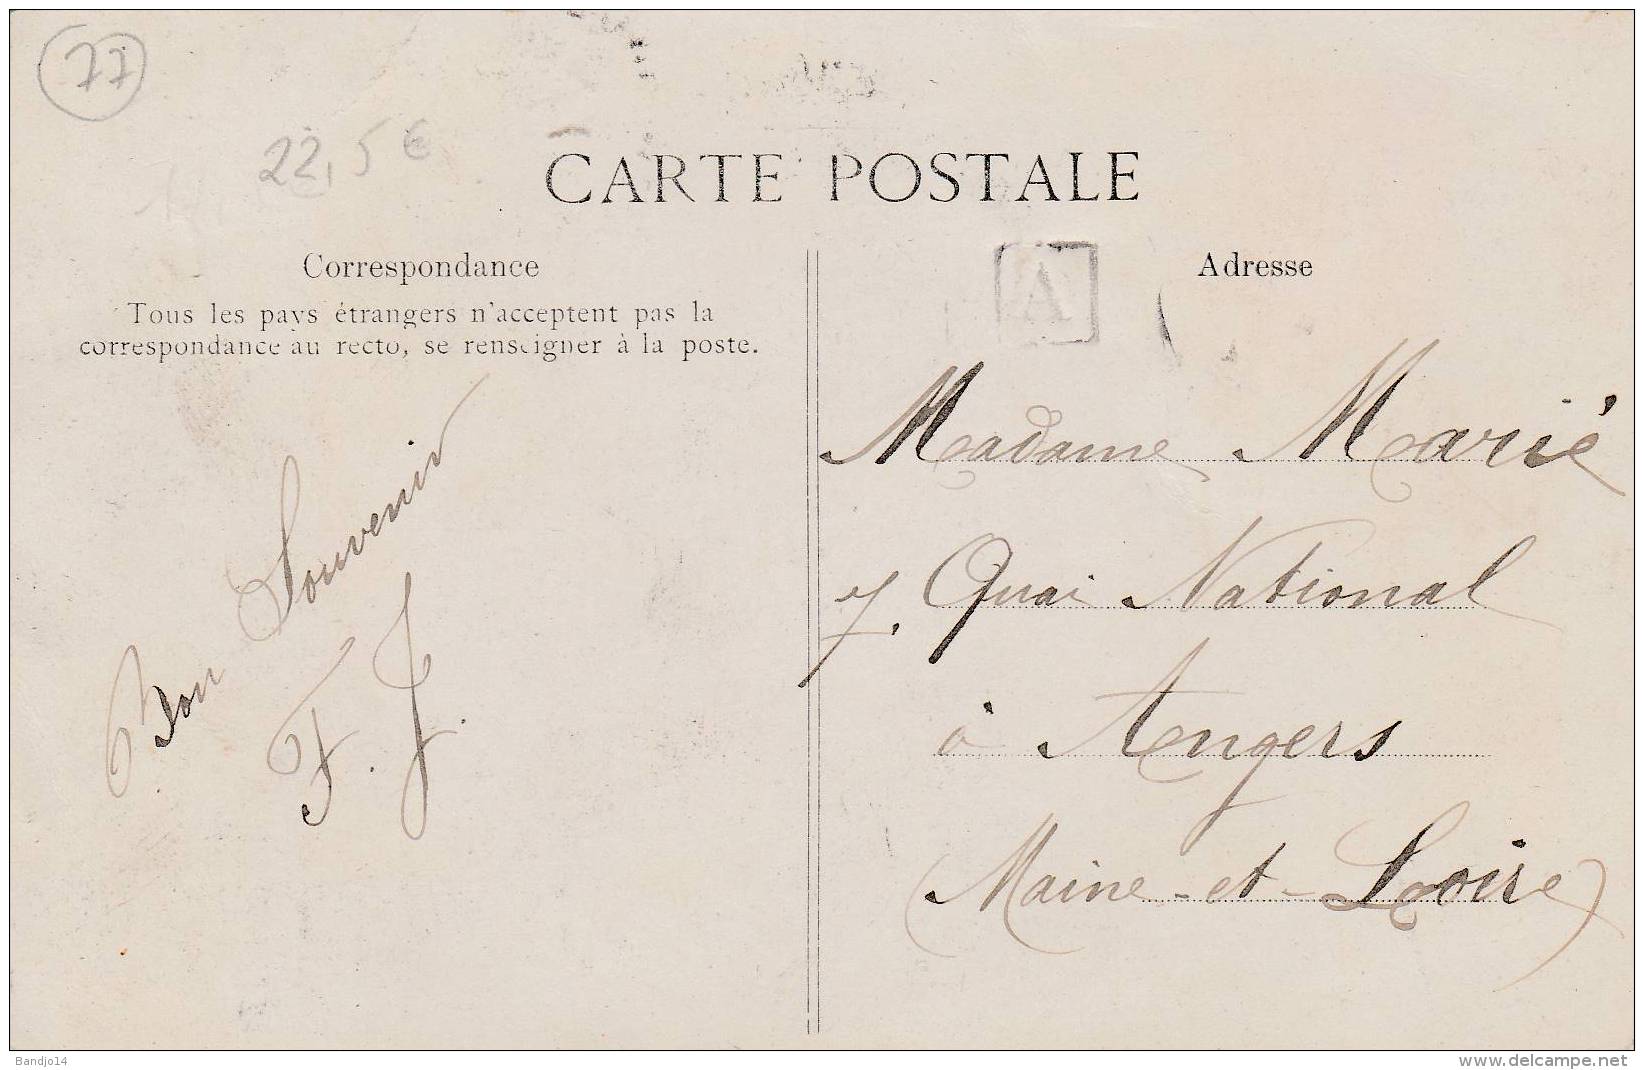 77
22,5 €
CARTE POSTALE
Correspondance
Tous les pays étrangers n'acceptent pas la
correspondance au recto, se renseigner à la poste.
Bon Souvenir
F. J.
A
Adresse
Madame Marié
7, Quai National
à Angers
(Maine-et-Loire)
Bandjo14
www.delcampe.net